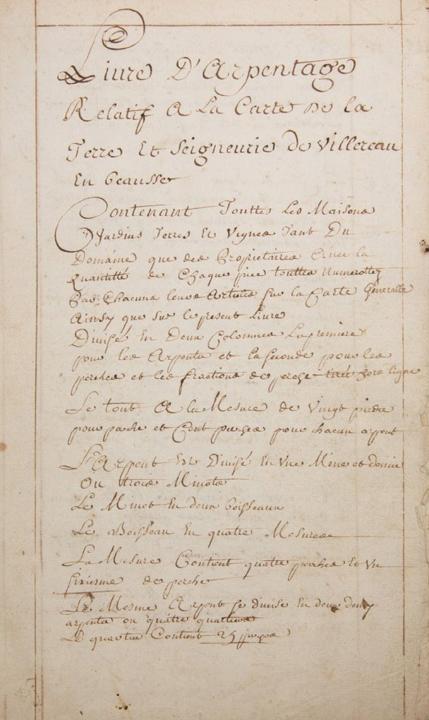 Livre D'Arpentage
Relatif A La Carte De la
Terre Et Seigneurie de Villereau
En beausse
Contenant Touttes Les Maisons
Jardins Terres Et Vignes Tant Du
Domaine que des Propriétaires Avec la
quantitté de Chaque piece touttes Numerottez
Par Chacuns leurs Articles sur la Carte Generalle
Ainsy que sur le present Livre
Divisé En Deux Colonnes La premiere
pour les Arpents et la seconde pour les
perches et les fractions de perche
Le tout A la Mesure de Vingt pieds
pour perche et Cent perches pour chacun arpent
L'Arpent Est Divisé En Une Mine et demie
Ou trois Minots
Le Minot En deux boisseaux
Le Boisseau En quatre Mesures
La Mesure Contient quatre perches Et Un
sixiesme de perche
Le Mesme Arpent se divise En deux demy
arpents ou quatre quartiers
Le quartier Contient 25 perches